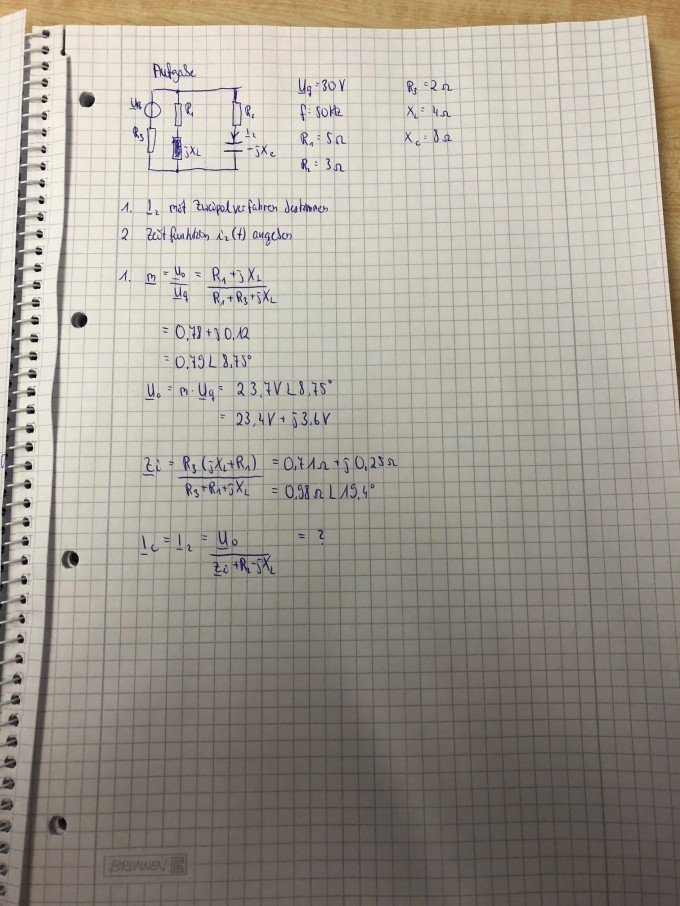 Aufgabe
Uq = 30V
R₃ = 2Ω
f = 50Hz
X_L = 4Ω
R₁ = 5Ω
X_C = 8Ω
R₂ = 3Ω
R₁
R₂
R₃
I₂
jX_L
-jX_C
1. I₂ mit Zweipolverfahren bestimmen
2 Zeitfunktion i₂(t) angeben
1. m = U₀/Uq = (R₁ + jX_L)/(R₁ + R₃ + jX_L)
= 0,78 + j0,12
= 0,79 ∠ 8,75°
U₀ = m · Uq = 23,7V ∠ 8,75°
= 23,4V + j3,6V
Zi = R₃(jX_L + R₁)/(R₃ + R₁ + jX_L) = 0,71Ω + j0,25Ω
= 0,98Ω ∠ 19,4°
I_C = I₂ = U₀/(Zi + R₂ - jX_L) = ?
BRUNNEN